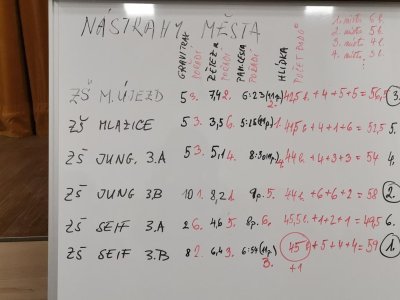 NÁSTRAHY MĚSTA
1. místo 6 b.
2. místo 5 b.
3. místo 4 b.
4. místo 3 b.
GRAVITRAX POŘADÍ ŘETĚZ POŘADÍ PAMĚŤ POŘADÍ HLÍDKA POČET BODŮ
ZŠ M. ÚJEZD 5 3. 7,4 2. 6:23 (11p.) 2. 42,5 b. + 4 + 5 + 5 = 56,5 3.
ZŠ MLAZICE 5 3. 3,5 6. 5:15 (11p.) 1. 41,5 b. + 4 + 1 + 6 = 52,5 5.
ZŠ JUNG. 3.A 5 3. 5,1 4. 8:30 44 b. + 4 + 3 + 3 = 54 4.
ZŠ JUNG 3.B 10 1. 8,2 1. 9p. 5. 44 b. + 6 + 6 + 2 = 58 2.
ZŠ SEIF 3.A 2 6. 4,6 5. 8p. 6. 45,5 b. + 1 + 2 + 1 = 49,5 6.
ZŠ SEIF 3.B 8 2. 6,4 3. 6:54 (11p.) 3. 45 b. + 5 + 4 + 4 = 59 1.
+1